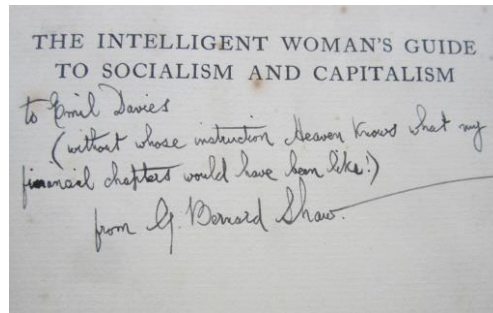 THE INTELLIGENT WOMAN'S GUIDE
TO SOCIALISM AND CAPITALISM
to Emil Davies
(without whose instruction Heaven knows what my
financial chapters would have been like!)
from G. Bernard Shaw.